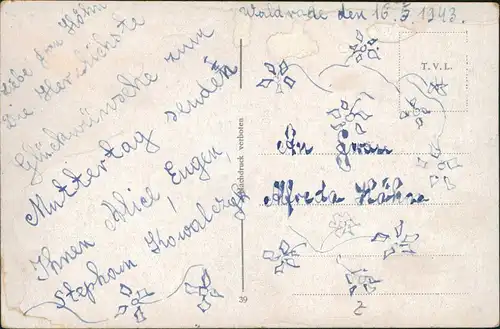 Waldrade den 16.5 1943.
Liebe Frau Höhn
Die Herzlichste
Glückwünsche zum
Muttertag senden
Ihnen Alice Eugen,
Stephan Kowalczyk
Nachdruck verboten
39
T.V.L.
An Frau
Alfreda Höhne